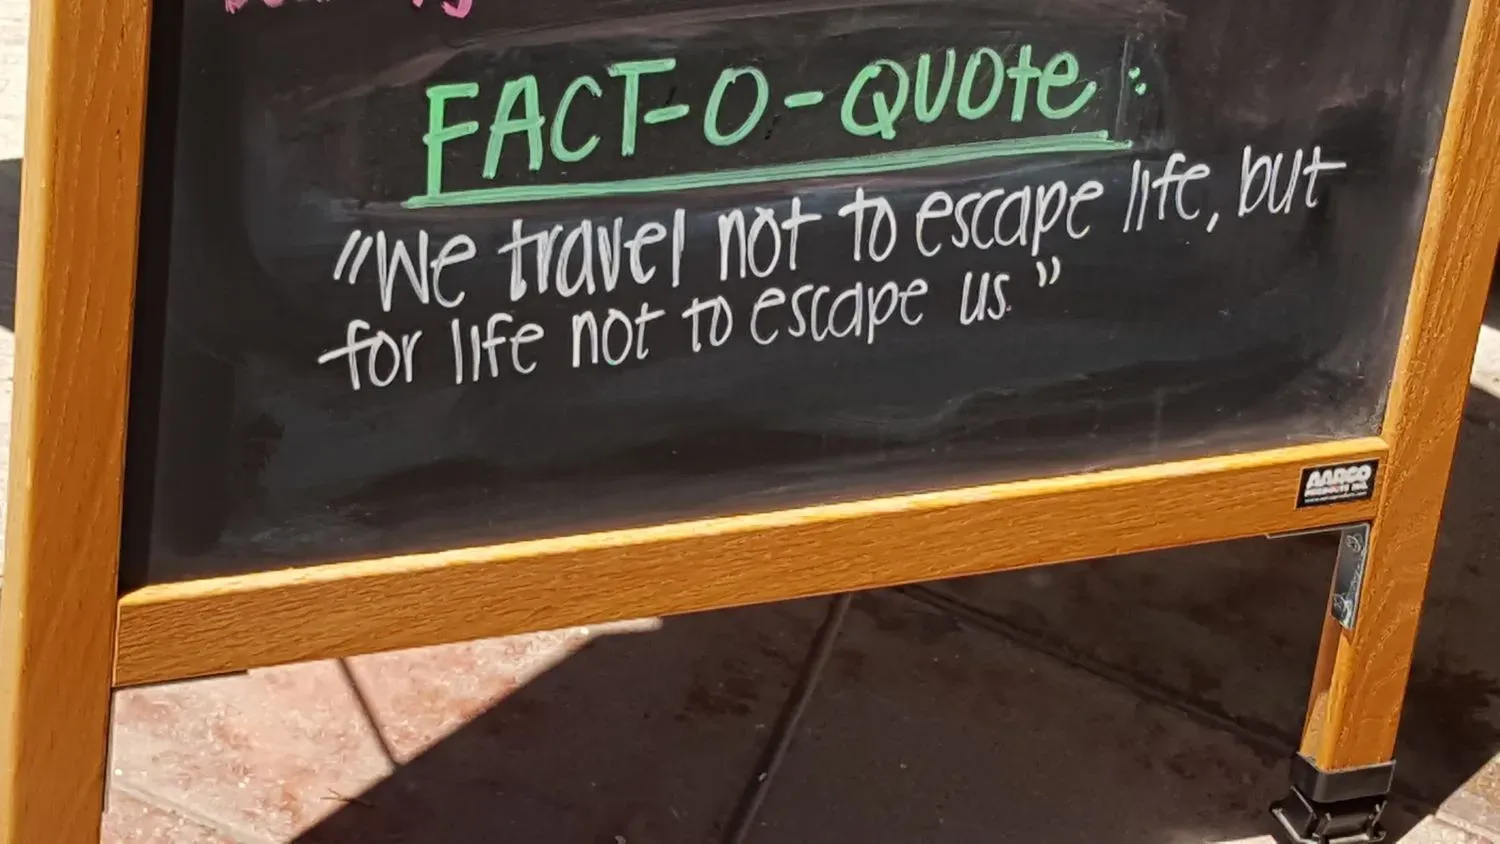 FACT-O-QUOTE:
"We travel not to escape life, but
for life not to escape us."
AARCO